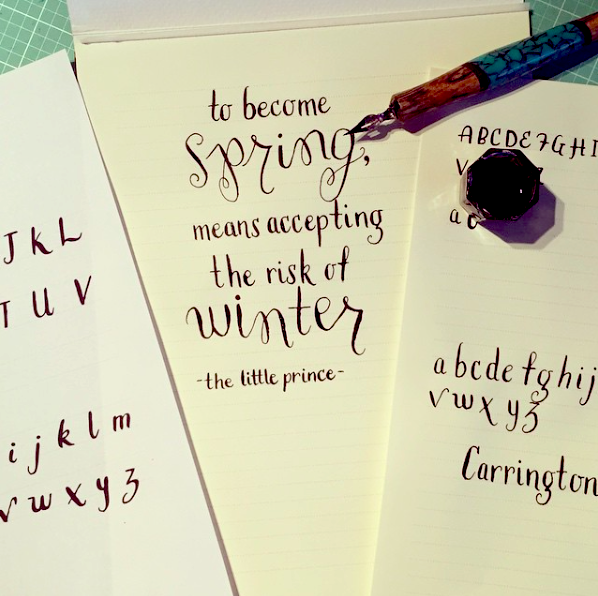 to become
spring,
means accepting
the risk of
winter
-the little prince-
J K L
T U V
i j k l m
v w x y z
ABCDEFGHI
V
a c
a b c d e f g h i j
v w x y z
Carrington